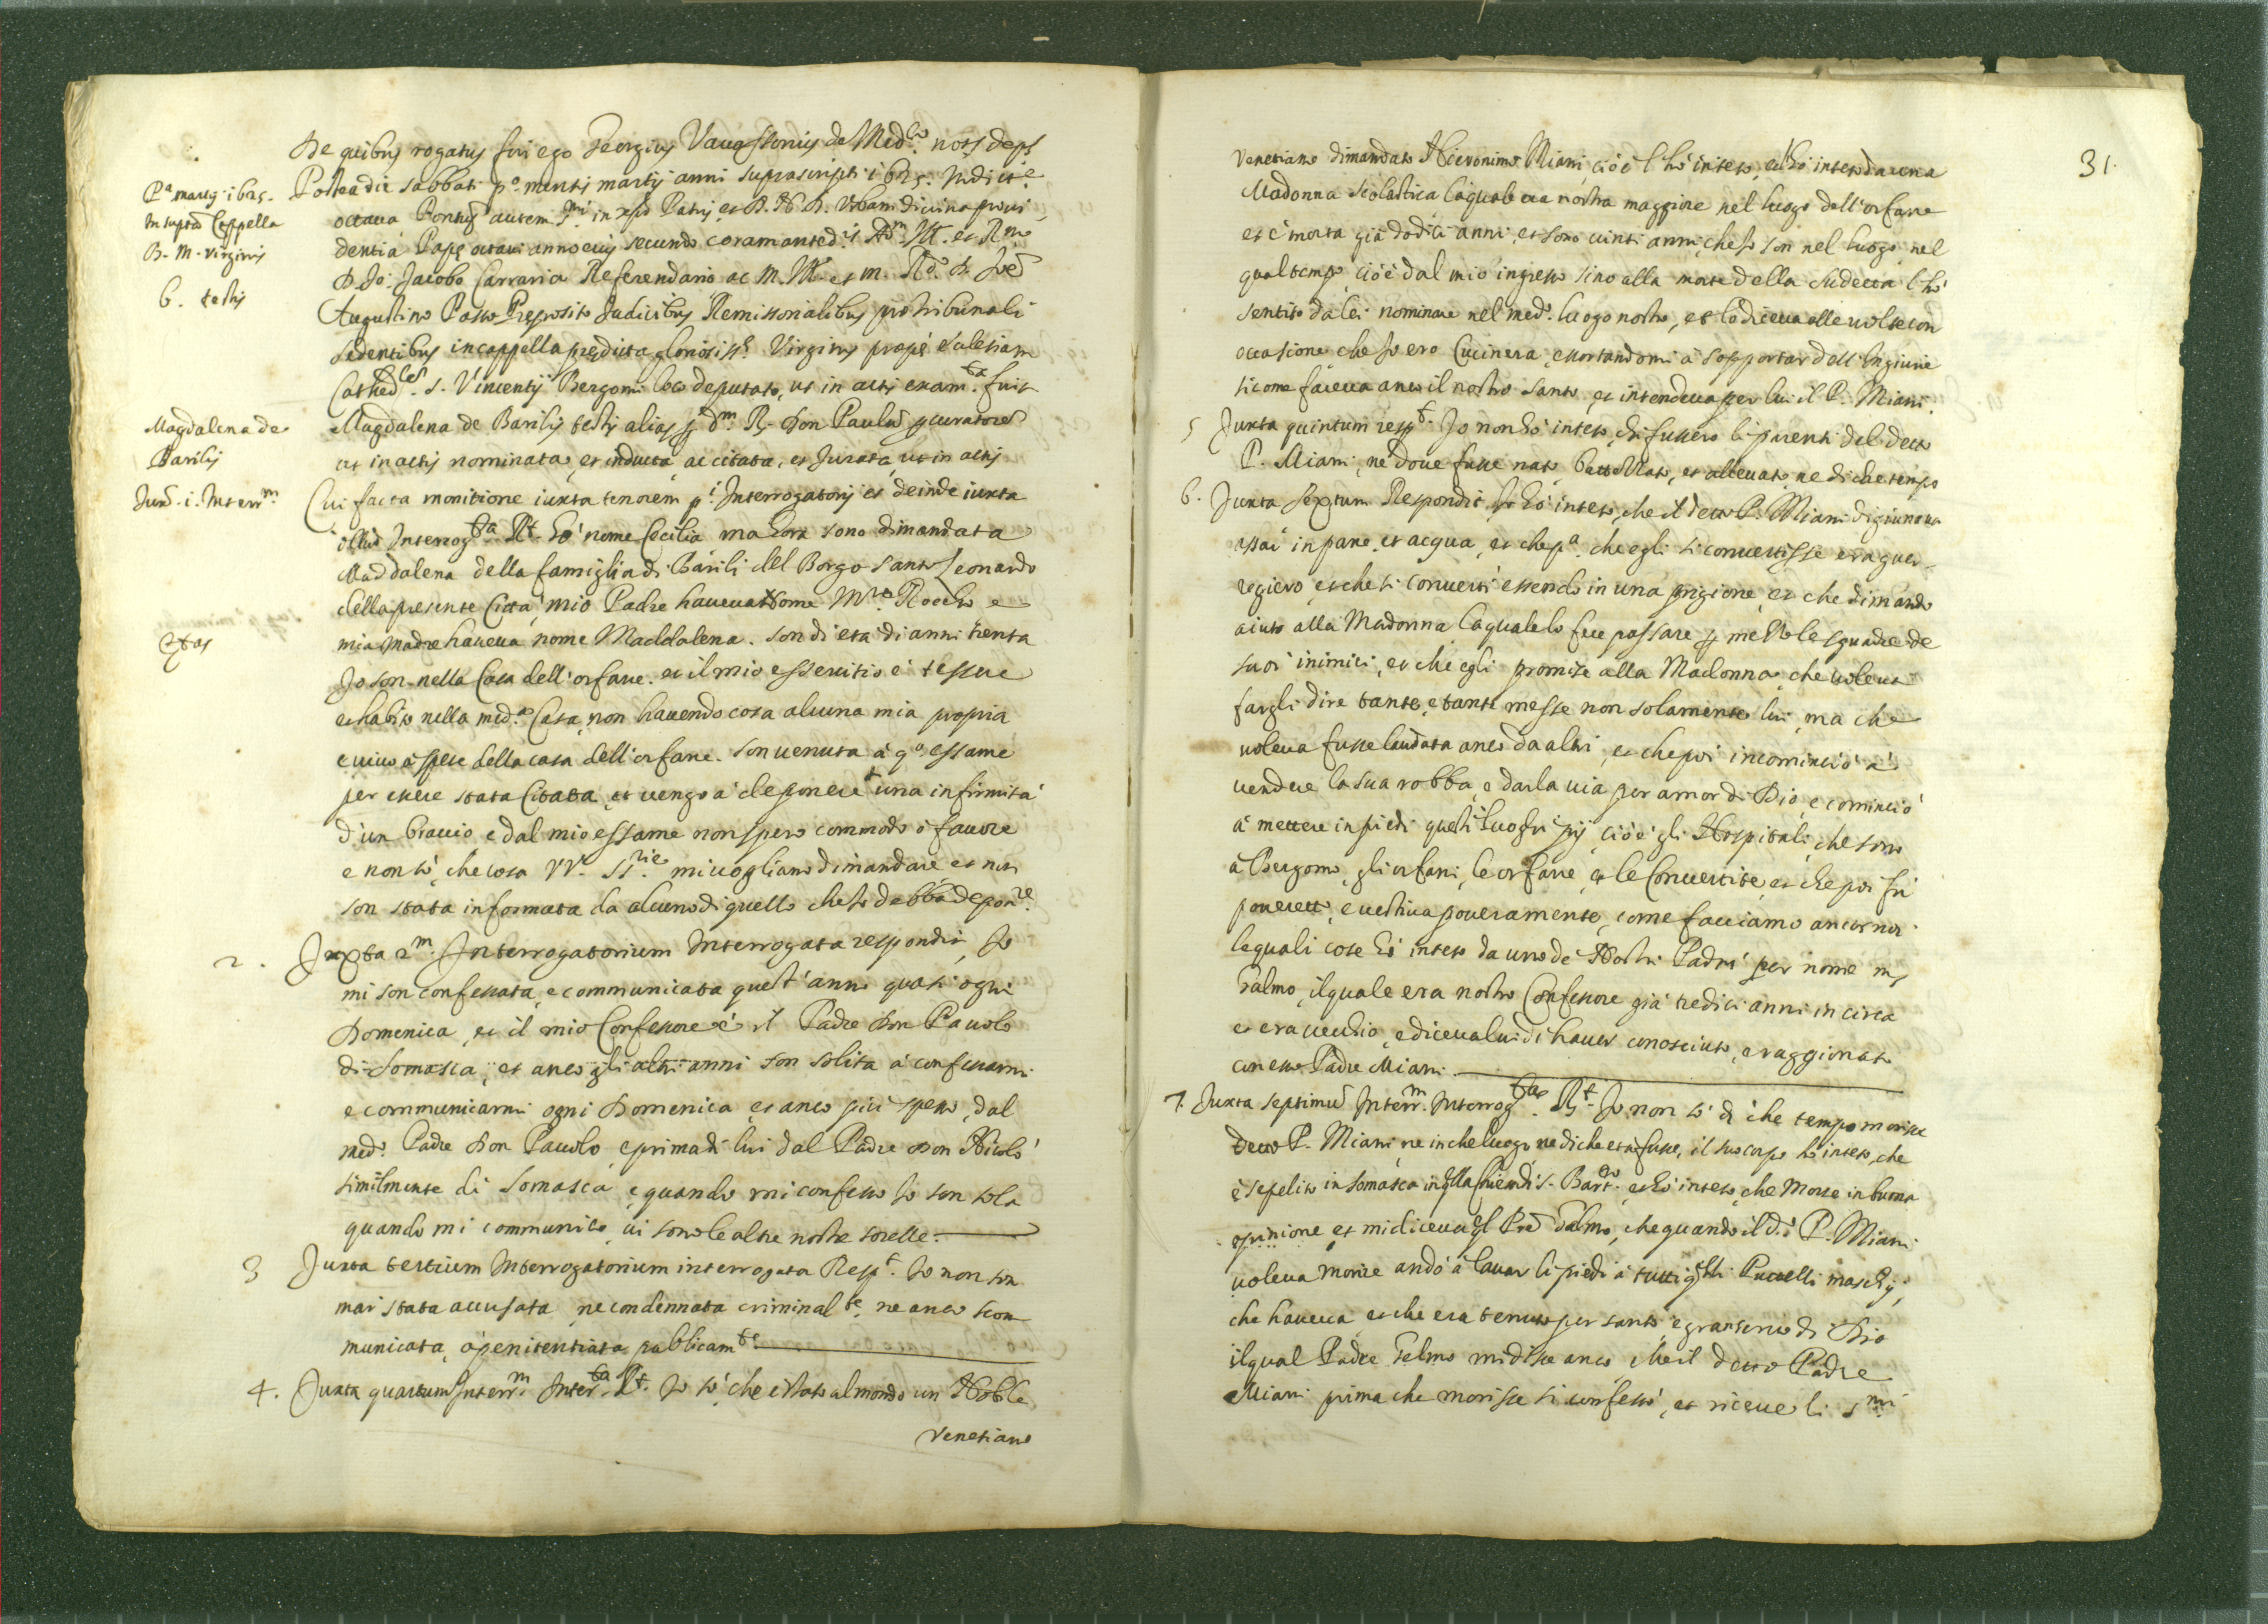 De quibus rogatus fui ego Georgius Vavassorius de Med.co not.s dep.s
P.a martij 1625.
In supta Cappella
B. M. Virginis
6. testis
Postea die sabbati p.o mensis martij anni suprascripti 1625. Indict.e
octava Pontus autem S.mi in xpo Patris et D. N. D. Urbani divina provi
dentia Pape octavi anno eius secundo coram anted.is Adm. Ill. et R.mo
D. Jo: Jacobo Carrara Referendario ac M. Ill. et m. R.do D. Joe
Augustino Passo Preposito Judicibus Remissorialibus pro tribunali
sedentibus in cappella predicta gloriosiss.e Virginis prope ecclesiam
Cathed.lem S. Vincentij Bergomi loco deputato, ut in actis exam.ta fuit
Magdalena de
Barilis
Magdalena de Barilis testis alias p d.m R. Don Paulu pcuratore
ut in actis nominata, et inducta ac citata, et Jurata ut in actis
Jux.a 1. Interr.m
Cui facta monitione iuxta tenorem p.i Interrogatorij et deinde iuxta
illud Interrog.ta R.t Hò nome Cecilia ma hora sono dimandata
Maddalena della famiglia di Barili del Borgo Santo Leonardo
della presente Città, mio Padre haveva nome M.ro Rocho e
Etas
mia Madre haveva nome Maddalena. son di età di anni trenta
Jo son nella Casa dell'orfane. et il mio essercitio è tessere
et habito nella med.a Casa, non havendo cosa alcuna mia propria
e vivo à spese della casa dell'orfane. son venuta à q.o essame
per essere stata Citata, et vengo à deponere una infirmità
d'un braccio e dal mio essame non spero commodo ò favore
e non sò, che cosa VV. SS.rie mi vogliano dimandare et non
son stata informata da alcuno di quello che Jo debba depon.re
2. Juxta 2.m Interrogatorium Interrogata respondit, Jo
mi son confessata, e communicata quest'anno quasi ogni
Domenica, et il mio Confessore è il Padre Don Pavolo
di Somasca, et anco gli altri anni son solita à confessarmi
e communicarmi ogni Domenica et anco più spesso, dal
med.o Padre Don Pavolo, e prima di lui dal Padre Don Nicolò
similmente di Somasca, e quando mi confesso Jo son sola
quando mi communico vi sono le altre nostre sorelle.
3 Juxta tertium Interrogatorium interrogata Resp.t Jo non son
mai stata accusata, ne condennata criminal.te, ne anco scom
municata, ò penitentiata publicam.te
4. Juxta quartum Interr.m Inter.ta R.t Jo sò, che è stato al mondo un Noble
Venetiano
31.
Venetiano dimandato Hieronimo Miani ciò è l'hò inteso, et l'hò inteso da una
Madonna Scolastica laquale era nostra maggiore nel luogo dell'orfane
et è morta già dodici anni, et sono vinti anni, che Jo son nel luogo, nel
qual tempo, ciò è dal mio ingresso sino alla morte della sudetta l'hò
sentito da lei nominare nel med.o luogo nostro, et lo diceva alle volte con
occasione che Jo ero Cucinera, essortandomi à sopportar dell'Ingiurie
sicome faceva anco il nostro Santo, et intendeva per lui il P. Miani.
5 Juxta quintum resp.t Jo non hò inteso, chi fussero li parenti del detto
P. Miani, ne dove fusse nato, battezzato, et allevato, ne di che tempo
6. Juxta Sextum Respondit Jo hò inteso, che il detto P. Miani digiunava
assai in pane, et acqua, et che p.a che egli si convertisse era guer-
regiero, et che si convertì essendo in una prigione, et che dimandò
aiuto alla Madonna, laquale lo fece passare p mezo le squadre de
suoi inimici, et che egli promise alla Madonna, che voleva
fargli dire tante, e tante messe non solamente lui, ma che
voleva fusse laudata anco da altri, et che poi incominciò à
vendere la sua robba, e darla via per amor di Dio, e cominciò
à mettere in piedi questi luoghi pij, ciò è gli Hospitali, che sono
à Bergomo, gli orfani, le orfane, et le Convertite, et che poi fù
poveretto, e vestiva poveramente, come facciamo ancor noi
lequali cose hò inteso da uno de Nostri Padri per nome m.s
Talmo, ilquale era nostro Confessore già tredici anni in circa
et era vecchio, e diceva lui di haver conosciuto, e raggionato
con esso Padre Miani
7. Juxta septimu Interr.m Interrog.ta R.t Jo non sò di che tempo morisse
detto P. Miani ne in che luogo, ne di che età fusse, il suo corpo hò inteso, che
è sepelito in Somasca in qlla Chiesa di S. Bart.o et hò inteso, che Morse in buona
opinione, et mi diceva ql Pre Talmo, che quando il d.o P. Miani
voleva morire andò à lavar li piedi à tutti qlli Puttelli maschij,
che haveva, et che era tenuto per santo, e gran servo di Dio
ilqual Padre Telmo mi disse anco, che il detto Padre
Miani prima che morisse si confessò, et riceve li S.mi